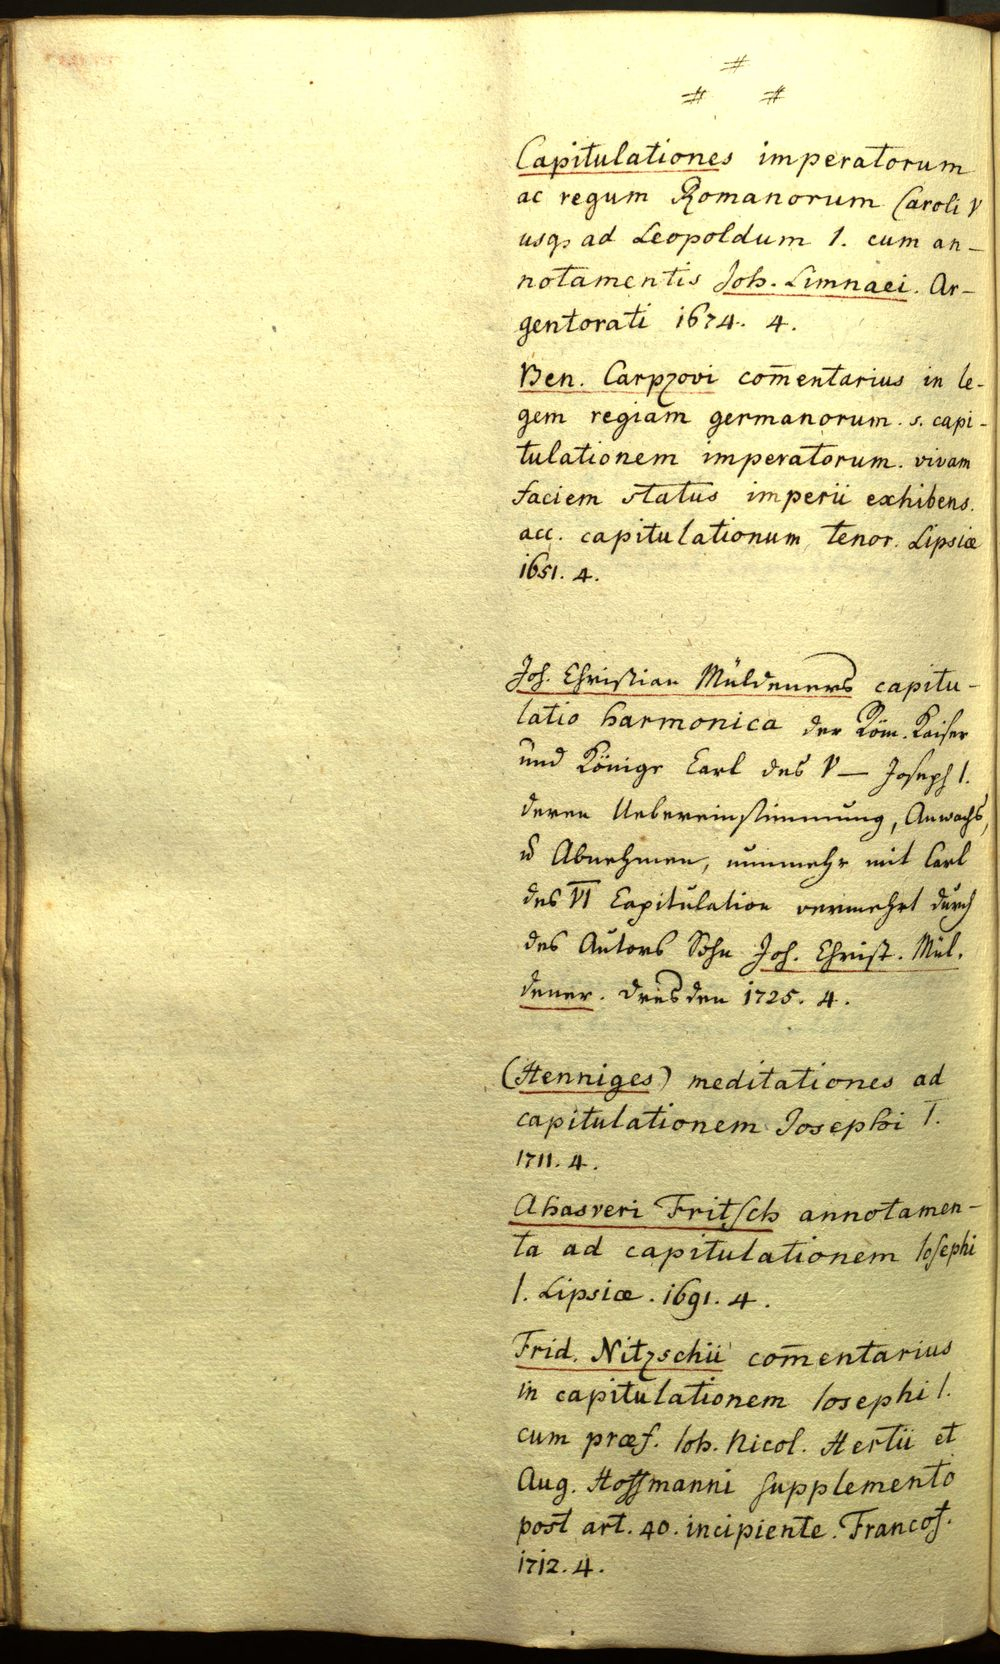 #
# #
Capitulationes imperatorum
ac regum Romanorum Caroli V
usqꝫ ad Leopoldum I. cum an-
notamentis Joh. Limnaei. Ar-
gentorati 1674. 4.
Ben. Carpzovi com̄entarius in le-
gem regiam germanorum. s. capi-
tulationem imperatorum. vivam
faciem status imperii exhibens.
acc. capitulationum tenor. Lipsiæ
1651. 4.
Joh. Christian Müldeners capitu-
latio harmonica der Röm. Kaiser
und Könige Carl des V — Joseph I.
deren Uebereinstimmung, Anwachs,
u Abnehmen, nunmehr mit Carl
des VI Capitulation vermehrt durch
des Autors Sohn Joh. Christ. Mül.
dener. Dresden 1725. 4.
(Henniges) meditationes ad
capitulationem Josephi I.
1711. 4.
Ahasveri Fritsch annotamen-
ta ad capitulationem Iosephi
I. Lipsiæ. 1691. 4.
Frid. Nitzschii com̄entarius
in capitulationem Iosephi I.
cum præf. Ioh. Nicol. Hertii et
Aug. Hoffmanni supplemento
post art. 40. incipiente. Francof.
1712. 4.